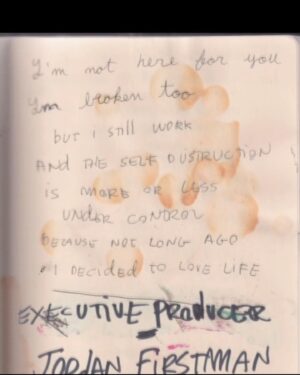 I'm not here for you
I'm broken too
but i still work
AND THE SELF DUSTRUCTION
is MORE OR LESS
UNDER CONTROL
BECAUSE NOT LONG AGO
I DECIDED TO LOVE LIFE
EXECUTIVE PRODUCER
JORDAN FIRSTMAN